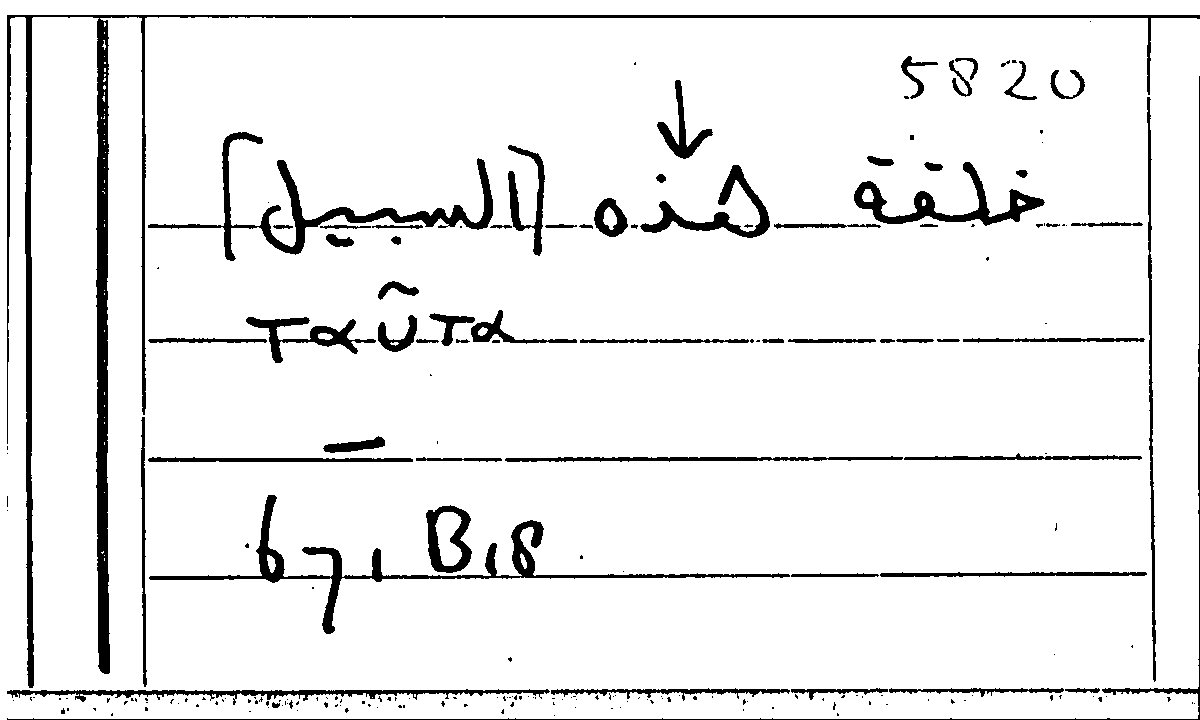 5820
↓
خلقة هذه [السبيل]
ταῦτα
—
67, B, 8